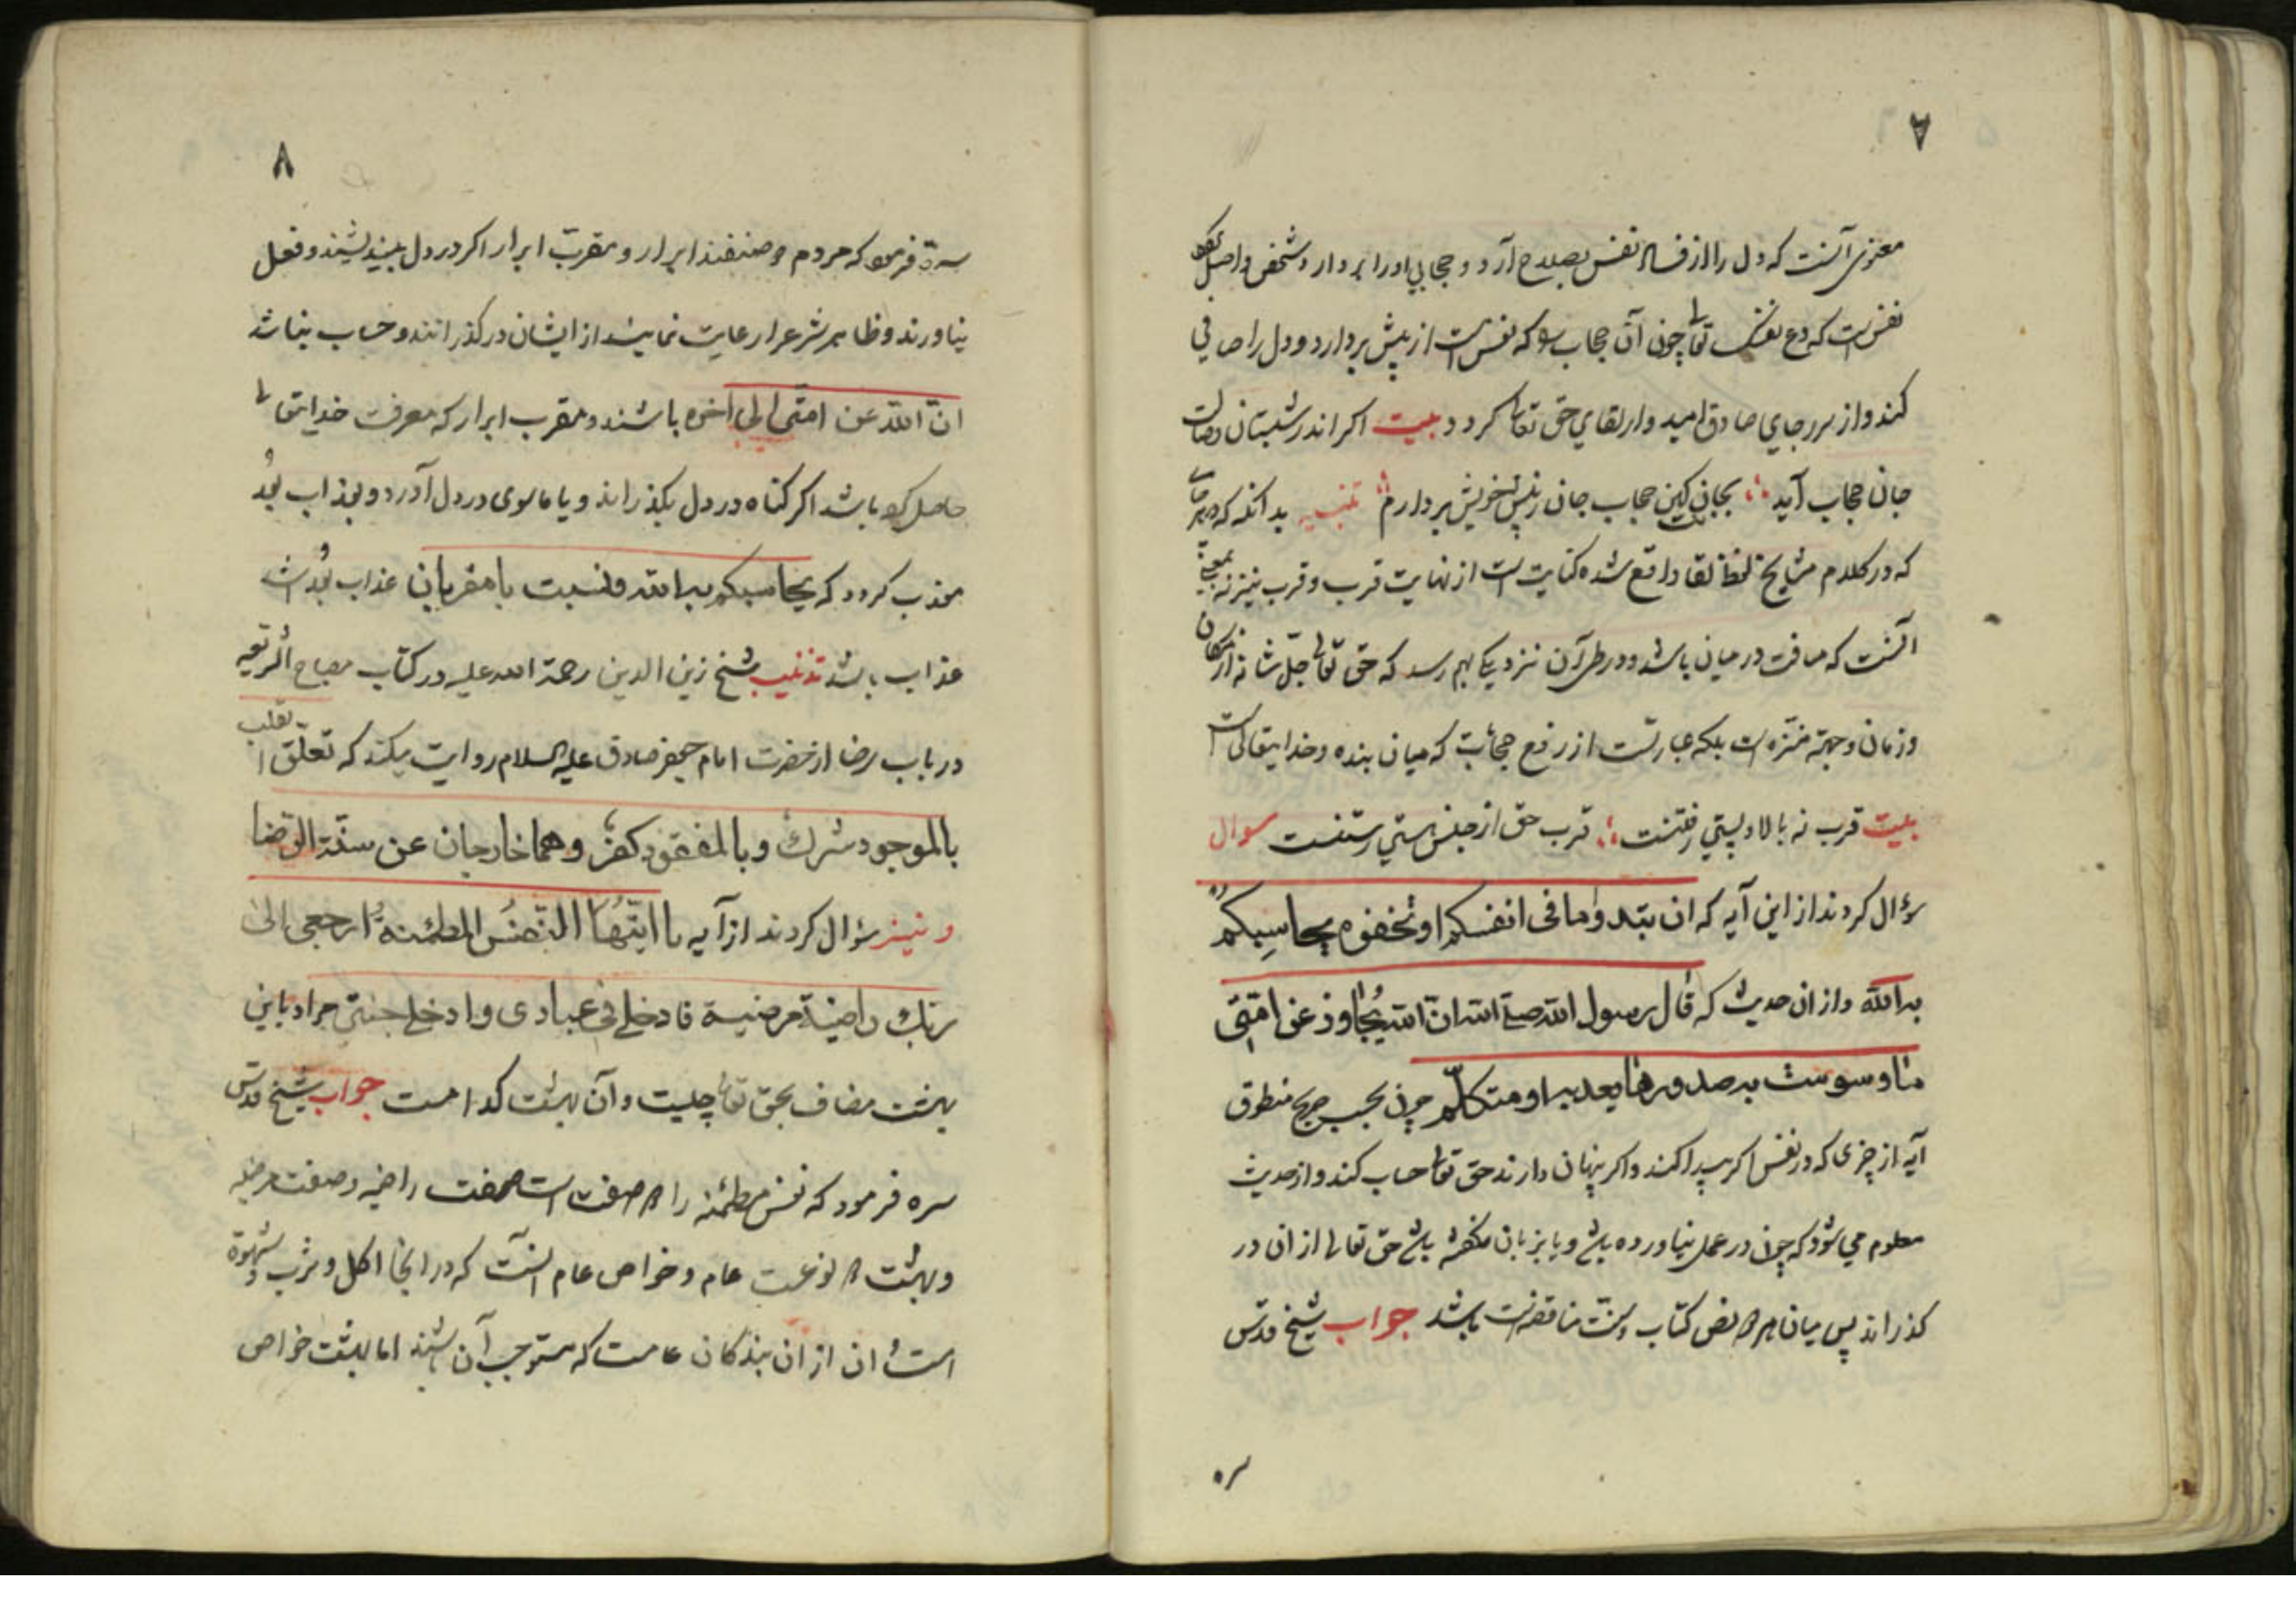 ۷
معنوی آنست که دل را از فساد نفس بصلاح آرد و حجابی او را بردارد و شخص واصل
نفس است که دع نفسک تعالی چون آن حجاب را که نفس است از پیش بردارد و دل را صافی
کند و از سر رجای صادق امیدوار لقای حق تعالی کردد بیت اکر اندر شبستان وصالت
جان حجاب آید بجانت کین حجاب جان ز پیش خویش بردارم تنبیه بدانکه هر جا
که در کلام مشایخ لفظ لقا واقع شده کنایت است از نهایت قرب و قرب نیز نه بمعنی
آنست که مسافت در میان باشد و در طی آن نزدیکی بهم رسد که حق تعالی جل شانه از مکان
و زمان و جهته منزه است بلکه عبارتست از رفع حجابت که میان بنده و خدایتعالی است
بیت قرب نه بالا و پستی رفتنست قرب حق از حبس هستی رستنست سوال
سؤال کردند از این آیه که ان تبدوا ما فی انفسکم او تخفوه یحاسبکم
به الله و از ان حدیث که قال رسول الله صلی الله ان الله یتجاوز عن امتی
ما وسوست به صدورها یعد به او متکلم چون بحسب صریح منطوق
آیه از چیزی که در نفس اکر پیدا کنند و اکر پنهان دارند حق تعالی حساب کند و از حدیث
معلوم می شود که چون در عمل نیاورده باشد و یا بزبان نکفته باشد حق تعالی از ان در
کذراند پس میان هر دو نص کتاب و سنت مناقضت باشد جواب شیخ قدس
سره
۸
سره فرمود که مردم دو صنفند ابرار و مقرب ابرار اکر در دل بیندیشند و فعل
نیاورند و ظاهر شرع را رعایت نمایند از ایشان درکذرانند و حساب نباشد
ان الله عن امتی الی اخره باشند و مقرب ابرار که معرفت خدایتعالی
حاصل کرده باشد اکر کناه در دل بکذراند و یا ماسوی در دل آورد و بعذاب بعد
معذب کردد که یحاسبکم به الله و نسبت با مقربان عذاب بعد اشد
عذاب باشد تذنیب شیخ زین الدین رحمة الله علیه در کتاب مصباح الشریعه
در باب رضا از حضرت امام جعفر صادق علیه السلام روایت میکند که تعلق القلب
بالموجود شرک و بالمفقود کفر و هما خارجان عن سنة الرضا
و نیز سؤال کردند از آیه یا ایتها النفس المطمئنة ارجعی الی
ربک راضیة مرضیة فادخلی فی عبادی وادخلی جنتی مراد باین
بهشت مضاف بحق تعالی چیست و آن بهشت کدامست جواب شیخ قدس
سره فرمود که نفس مطمئنه را دو صفت است صفت راضیه و صفت مرضیه
و بهشت دو نوعست عام و خواص عام آنست که در انجا اکل و شرب و شهوة
است ان از ان بندکان عامست که مستوجب آن باشند اما بهشت خواص